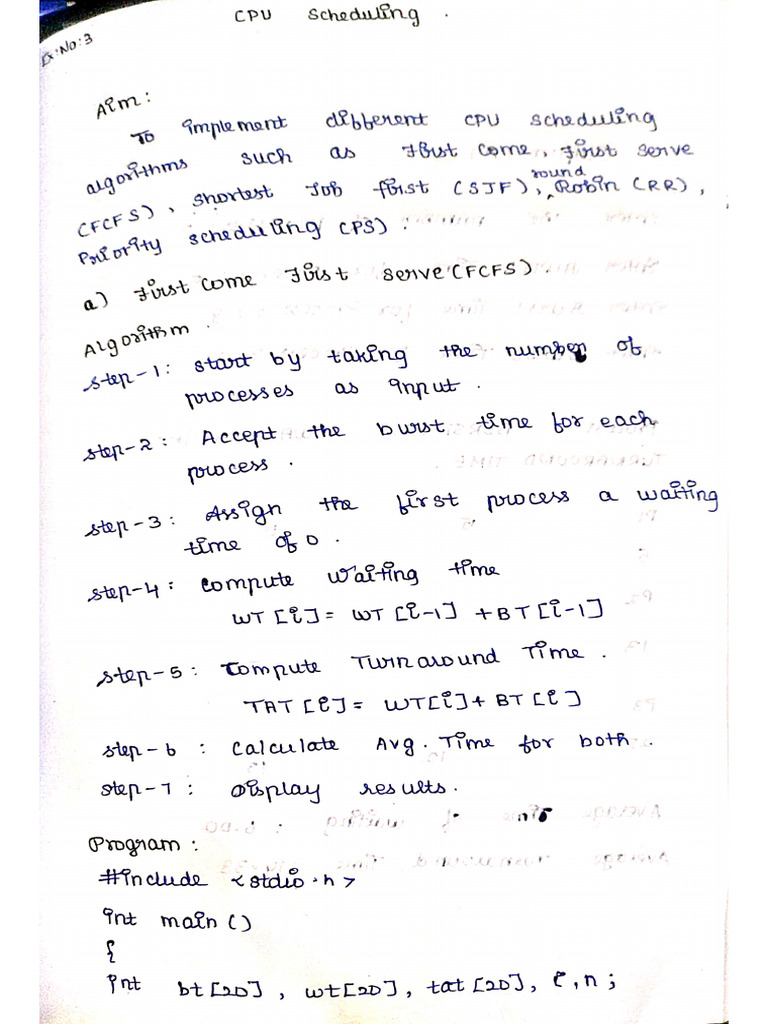 CPU Scheduling .
Ex:No:3
Aim:
To implement different CPU scheduling
algorithms such as First come, First serve
(FCFS), shortest Job first (SJF), round Robin (RR),
Priority scheduling (PS).
a) First come First serve (FCFS).
Algorithm.
step-1: start by taking the number of
processes as input.
step-2: Accept the burst time for each
process.
step-3: Assign the first process a waiting
time of 0.
step-4: compute waiting time
WT [i] = WT [i-1] + BT [i-1]
step-5: Compute Turnaround Time.
TAT [i] = WT[i] + BT [i]
step-6: Calculate Avg. Time for both.
step-7: Display results.
Program:
#include <stdio.h>
int main ()
{
int bt [20], wt[20], tat [20], i, n;